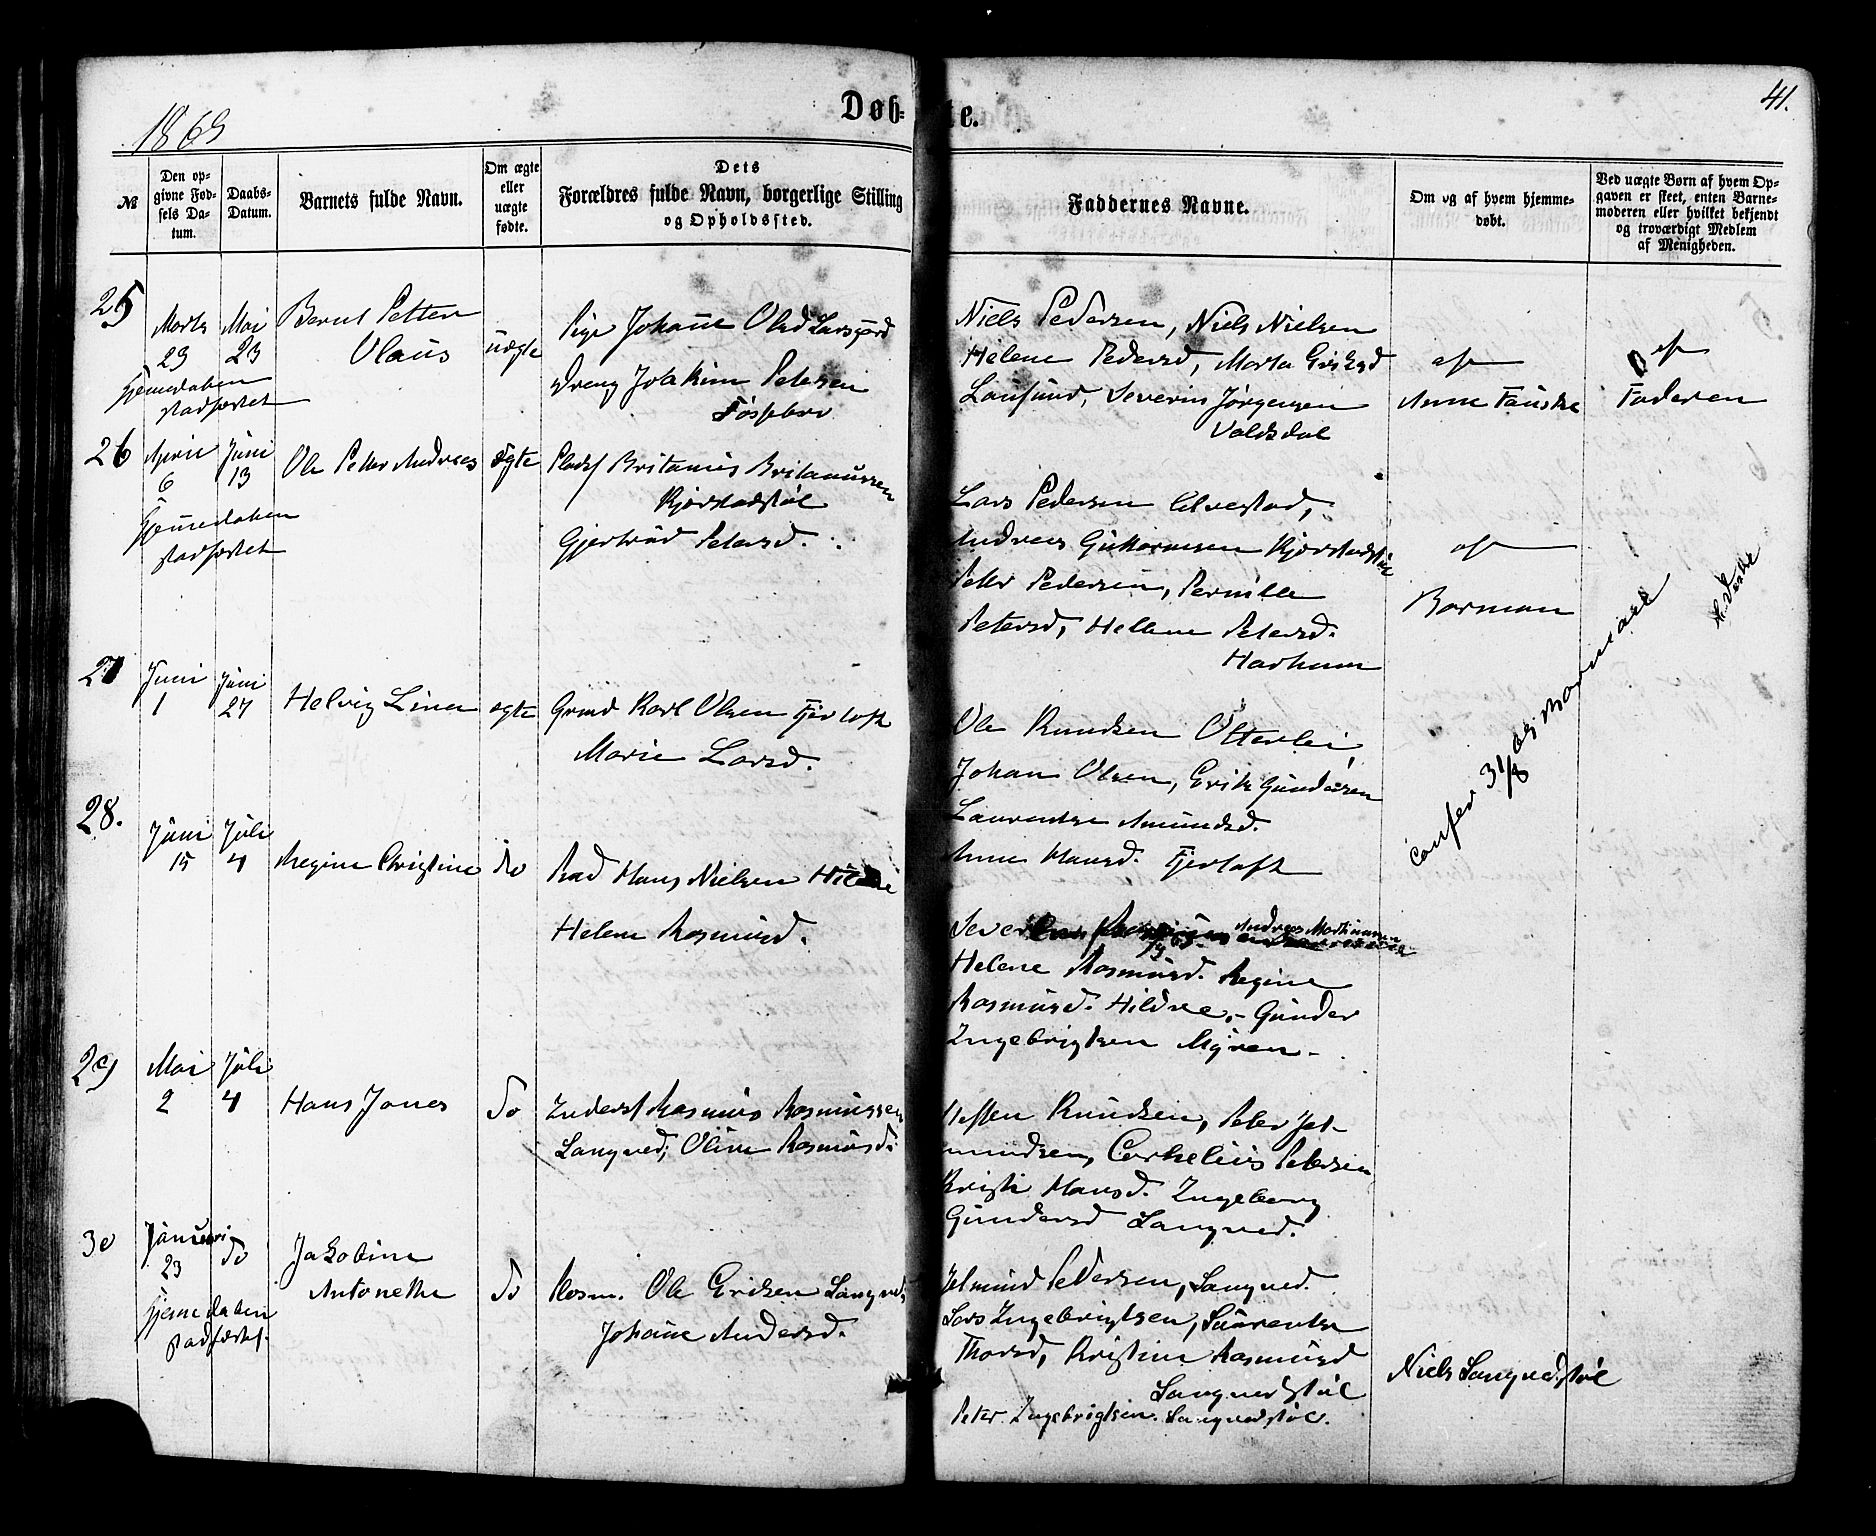 1869
Døb-
te.
41.
№
Den op-
givne Fød-
sels Da-
tum.
Daabs-
Datum.
Barnets fulde Navn.
Om ægte
eller
uægte
fødte.
Dets
Forældres fulde Navn, borgerlige Stilling
og Opholdssted.
Faddernes Navne.
Om og af hvem hjemme-
døbt.
Ved uægte Børn af hvem Op-
gaven er skeet, enten Barne-
moderen eller hvilket bekjendt
og troværdigt Medlem
af Menigheden.
25
Marts
23
Mai
23
Hjemedaaben
stadfæstet
Bernt Petter
Olaus
uægte
Pige Johanne Olsd
Dreng Joakim Petersen
Niels Pedersen, Niels Nielsen
Helene Pedersd, Marta
Severin Jørgensen
Valdsdal
af
Anne Fauske
af
Faderen
26
April
6
Juni
13
Hjemedaaben
stadfæstet
Ole Petter Andreas
ægte
Britanus Britanussen
Kjørstadstøl
Gjertrud Petersd.
Lars Pedersen Ulvestad,
Andreas Guttormsen Kjørstadstøl
Peter Pedersen, Pernille
Petersd, Hellene Petersd.
Harham
af
Borman
27
Juni
1
Juni
27
Helvig Line
ægte
Grmd Karl Olsen Fjørtoft
Marie Larsd.
Ole Knudsen Otterlei
Johan Olsen, Erik Gundersen
Laurentse Amundsd.
Anne Hansd. Fjørtoft
Confer 31/8
28.
Juni
15
Juli
4
Regine Christine
do
Hans Nielsen Hildre
Helene Rasmusd.
Andreas Martinussen
Helene Rasmusd. Regine
Rasmusd. Hildre, - Gunder
Ingebrigtsen Myren -
29
Mai
2
Juli
4
Hans Jonas
do
Inderst Rasmus Rasmussen
Langved, Oline Rasmusd.
Steffen Knudsen, Peter Jet-
mundsen, Cornelius Petersen
Kristi Hansd. Ingeborg
Gundersd Langved.
30
Januari
23
do
Hjemedaaben
stadfæstet.
Jakobine
Antonette
do
Ole Eriksen Langved,
Johanne Andersd.
Jetmund Pedersen, Langved.
Lars Ingebrigtsen, Laurentse
Thorsd, Kristine Rasmusd
Langvedstøl
Peter Ingebrigtsen. Langvedstøl.
Niels Langvedstøl